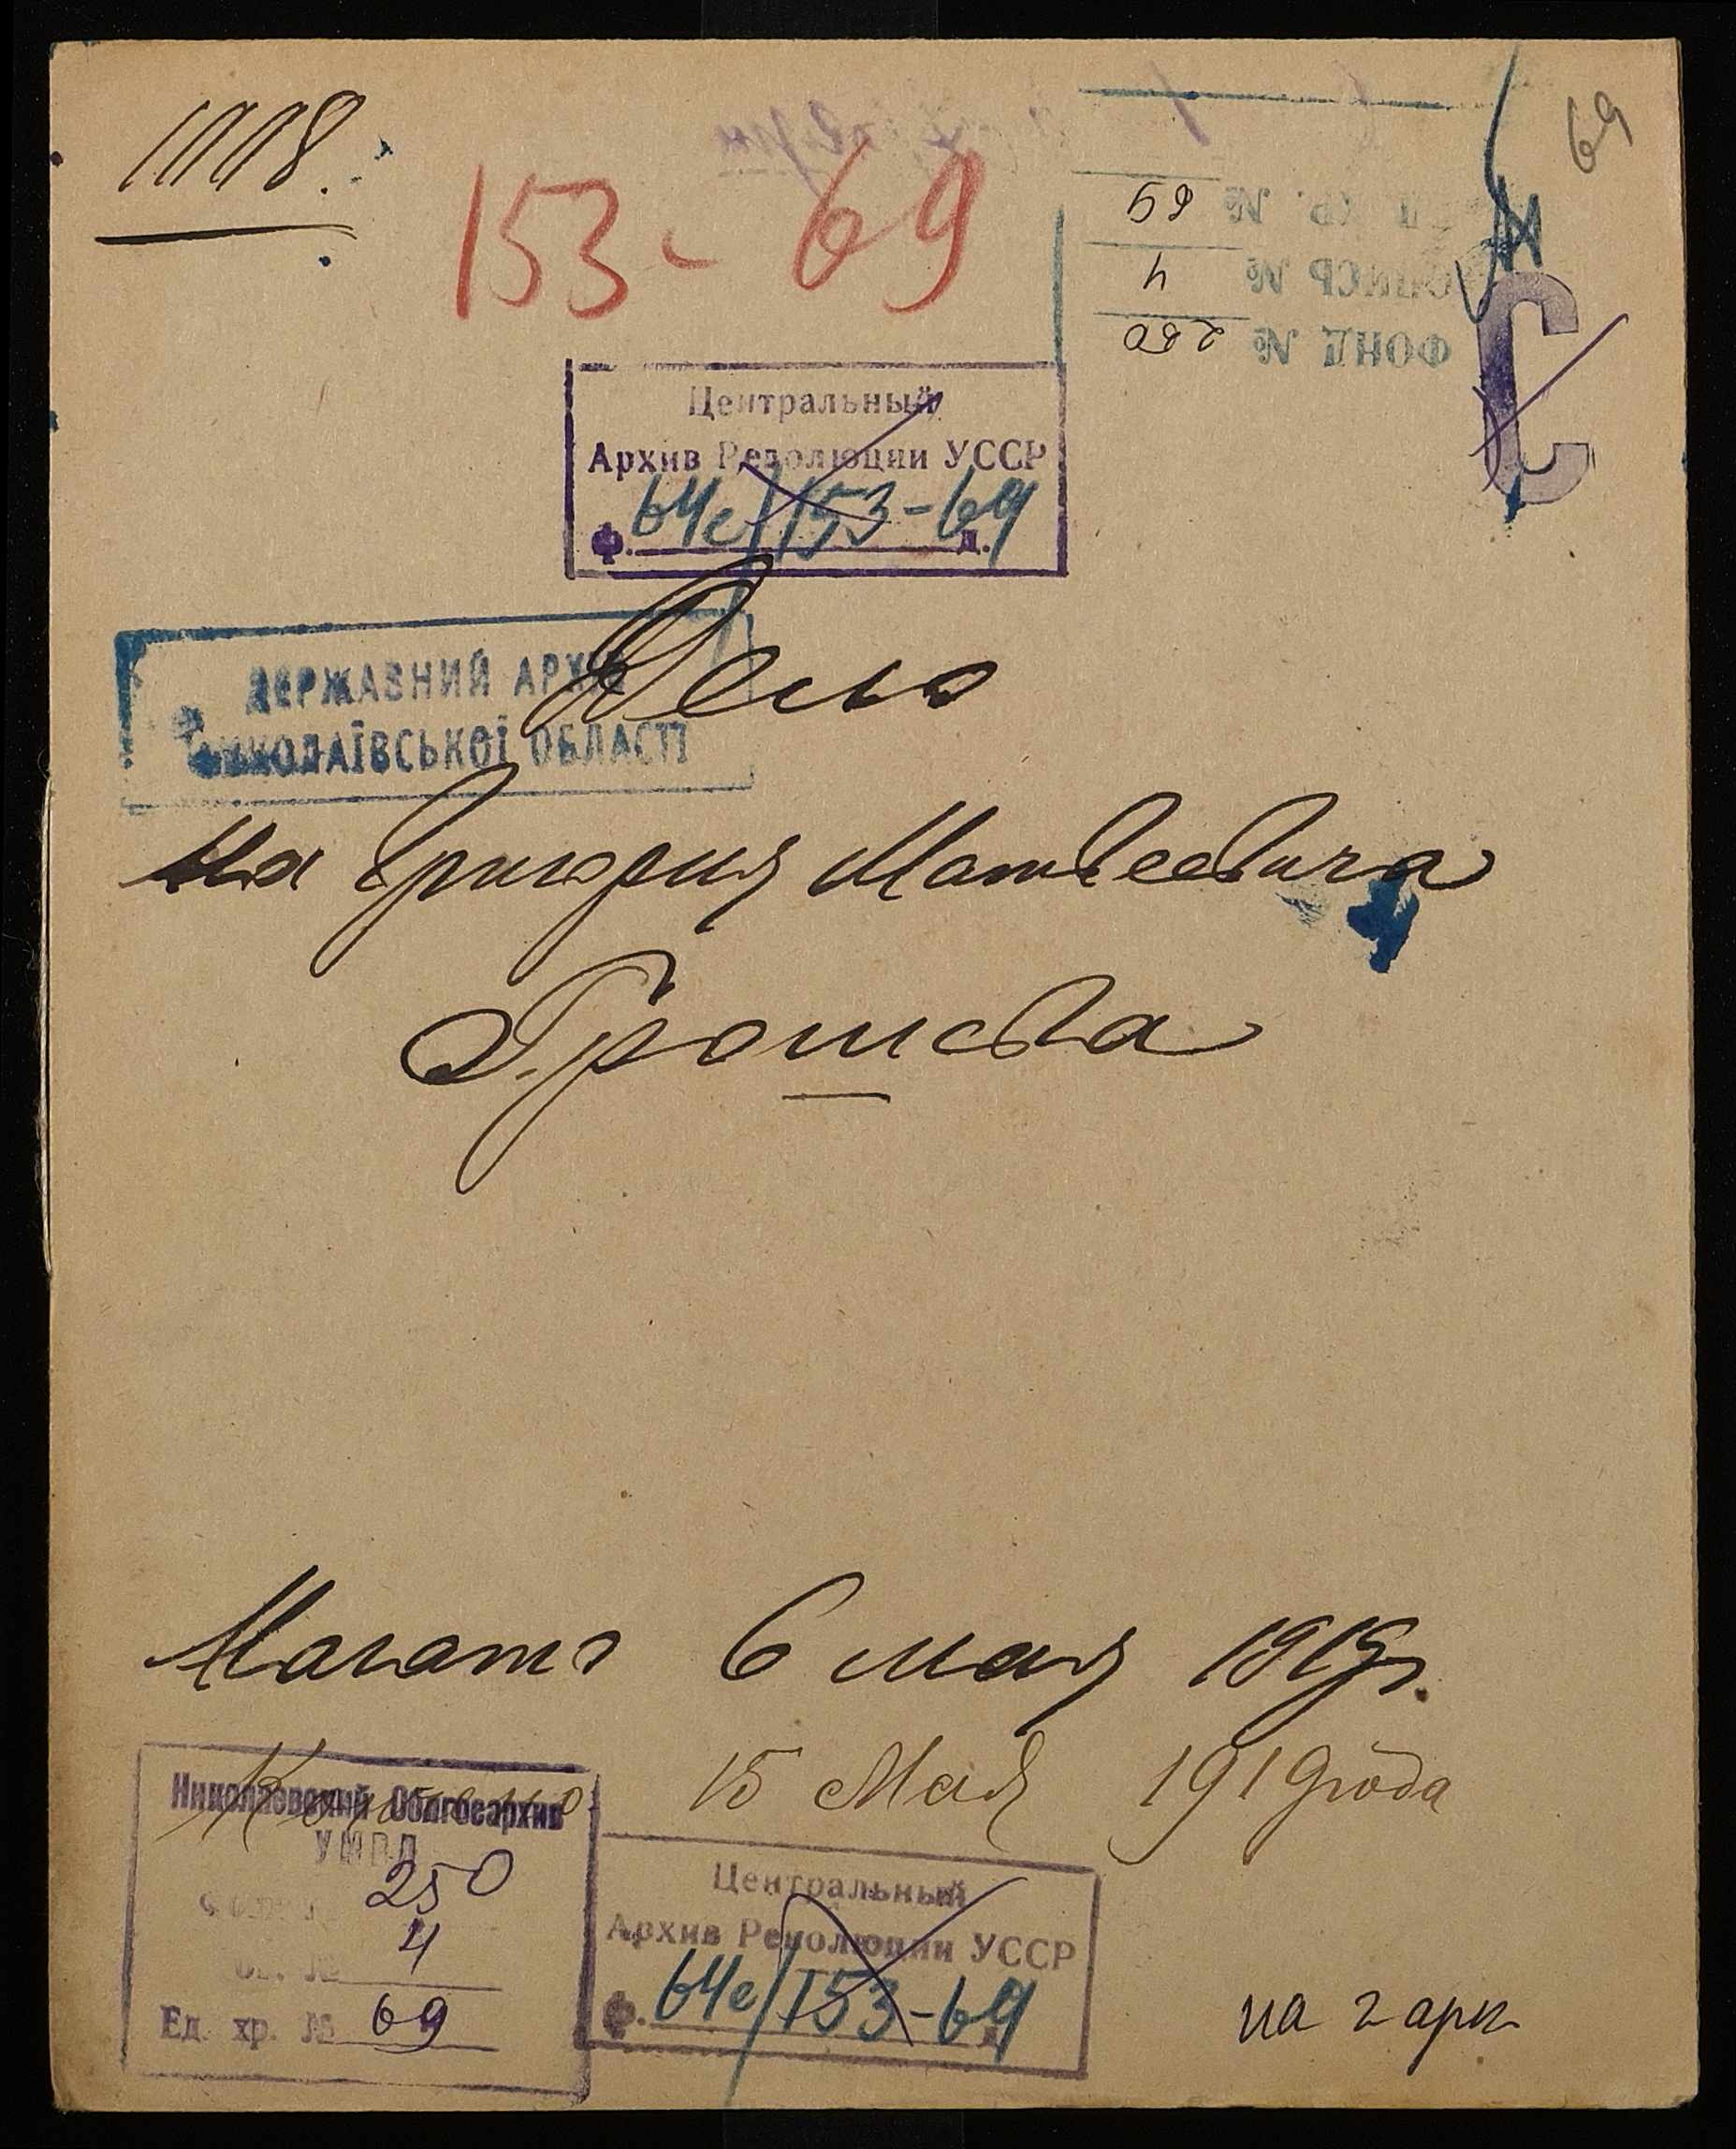 69
153 - 69
ФОНД № 250
ОПИСЬ № 4
ЕД. ХР. № 69
С
Центральный
Архив Революции УССР
Ф. 64с/153-69 д.
Дело
ДЕРЖАВНИЙ АРХІВ
МИКОЛАЇВСЬКОЇ ОБЛАСТІ
На Григория Матвеевича
Ерошева
Начато 6 мая 1919 г.
Кончено 15 Мая 1919 года
Николаевский Облгосархив
УМВД
250
4
Ед. хр. № 69
Центральный
Архив Революции УССР
Ф. 64с/153-69
на 2 арк